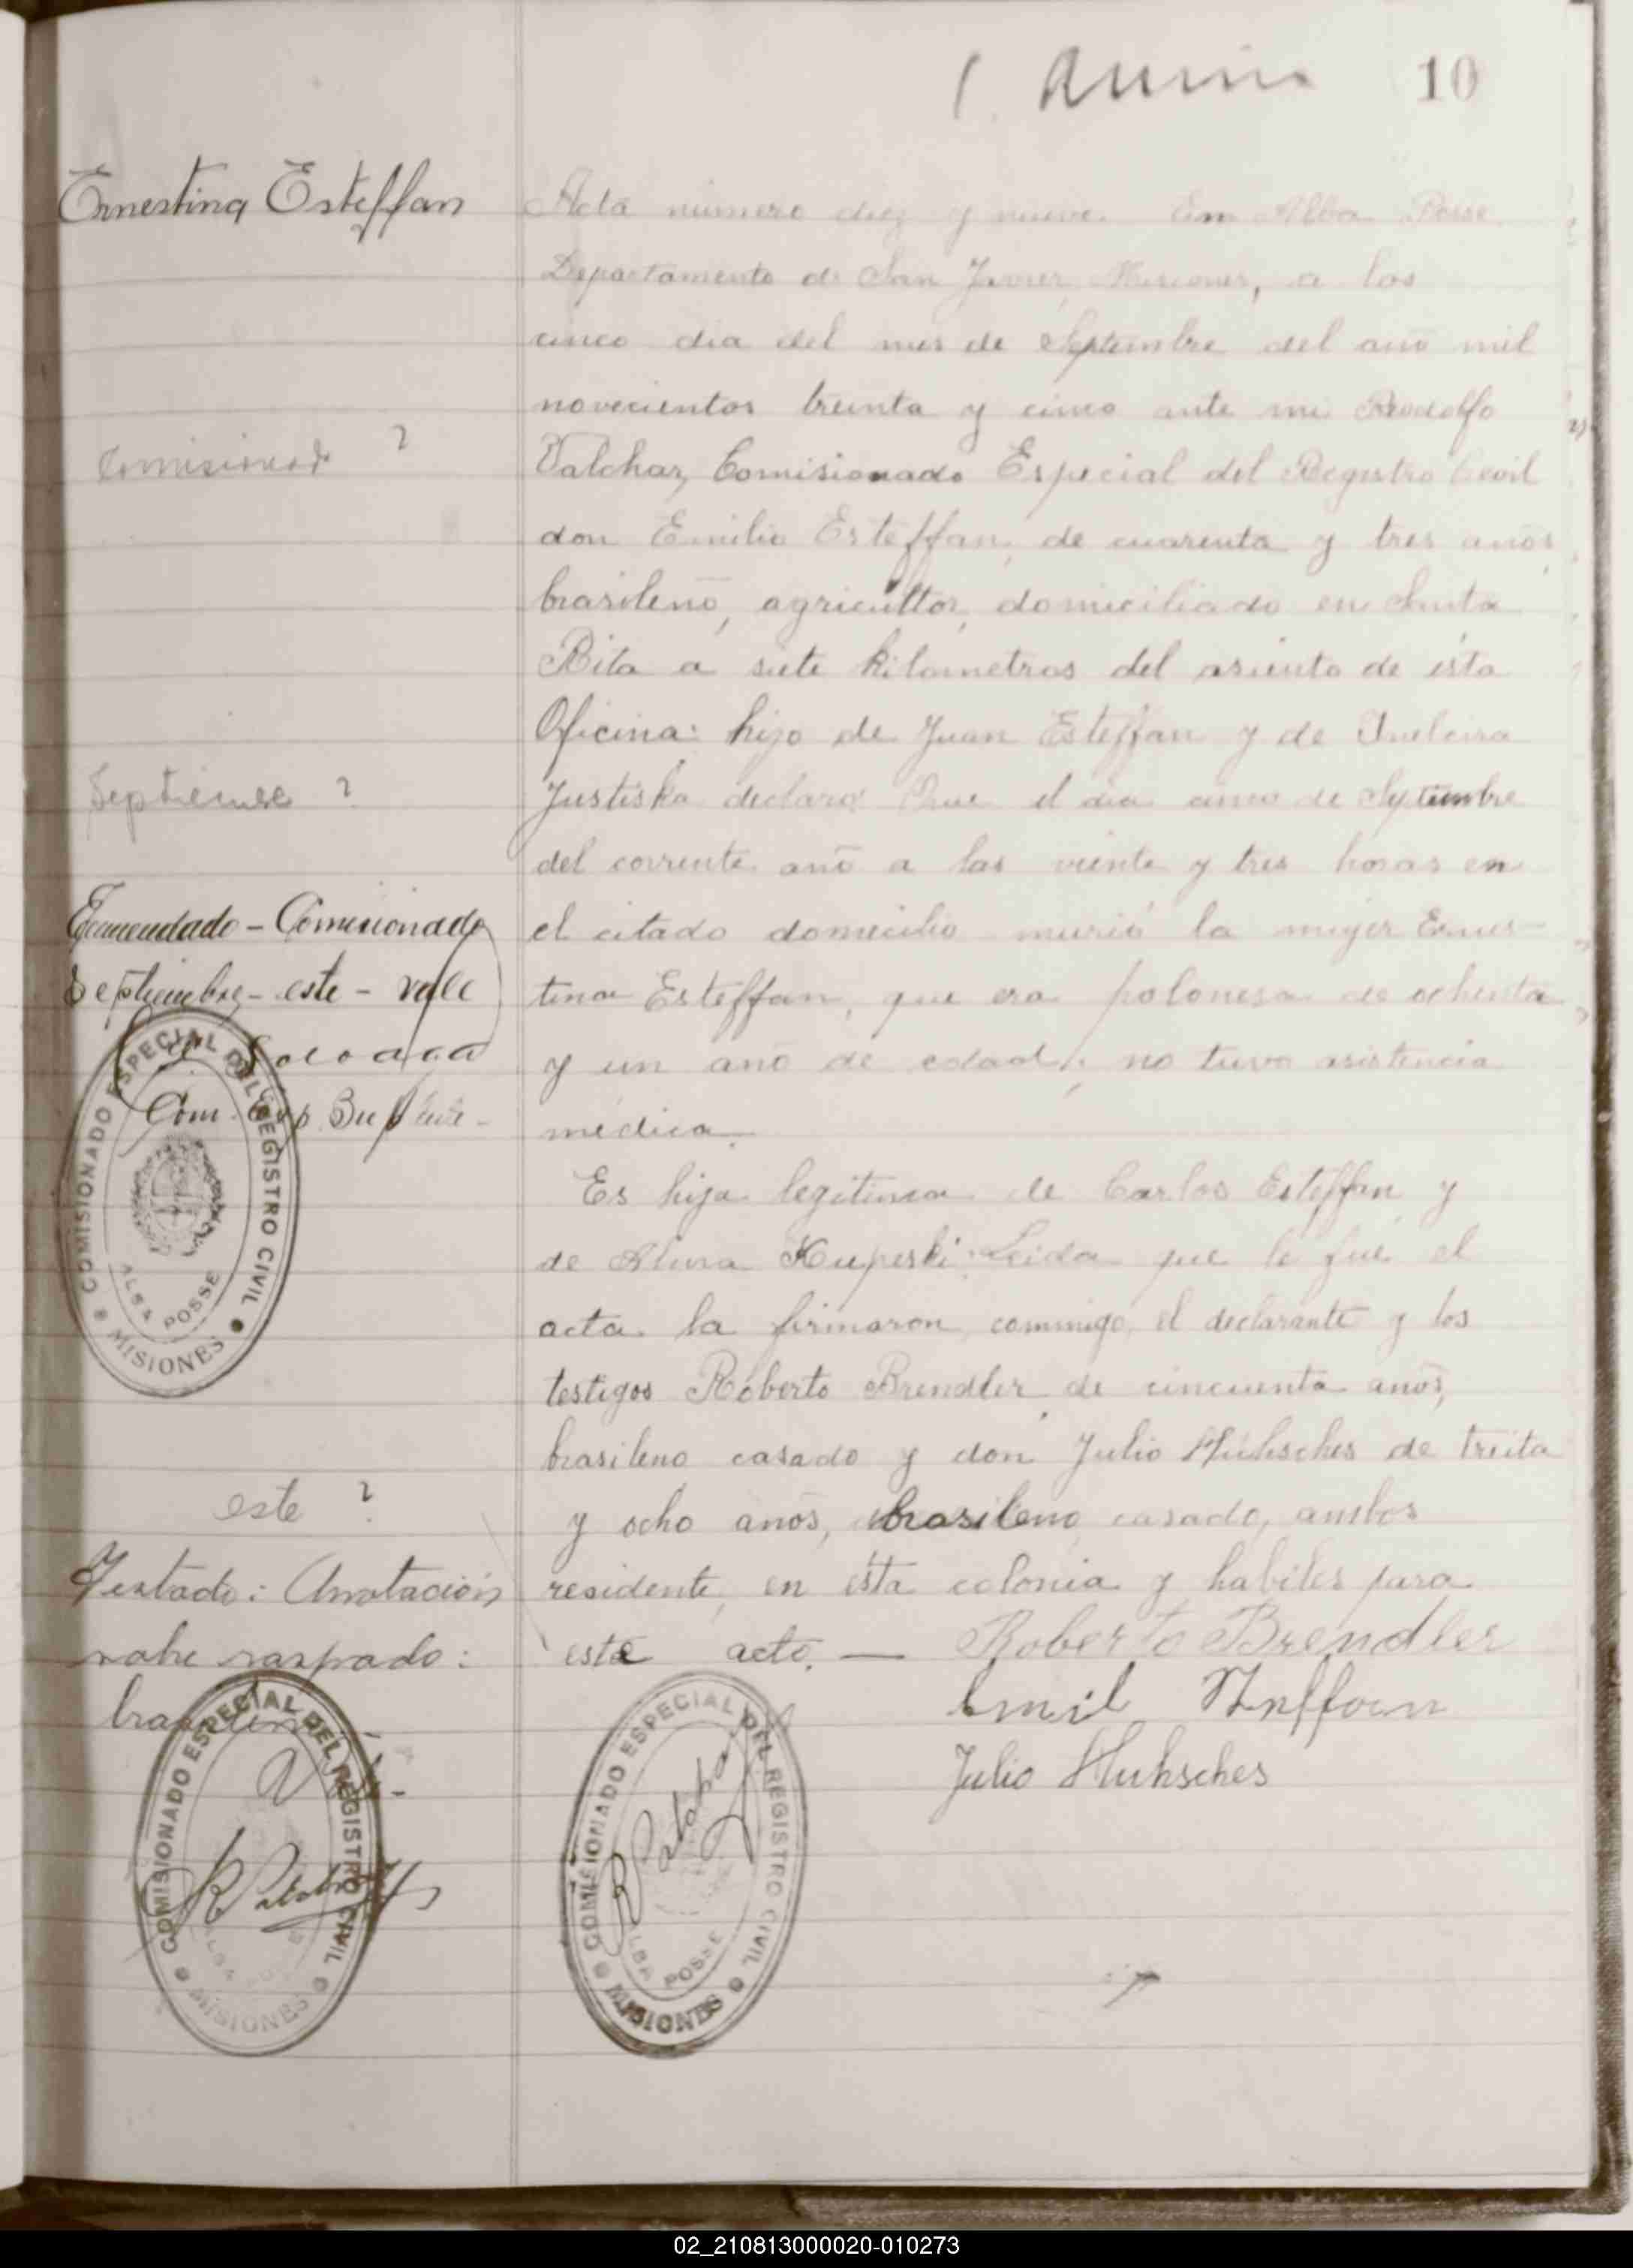 10
Ernestina Esteffan
Acta número diez y nueve. Em Alba Posse
Departamento de San Javier, Misiones, a los
cinco dia del mes de Septiembre del año mil
novecientos treinta y cinco ante mi Rodolfo
Comisionado ?
Comisionado Especial del Registro Civil
don Emilio Esteffan, de cuarenta y tres años,
brasileño, agricultor, domiciliado en Santa
Rita a siete kilometros del asiento de ésta
Oficina: hijo de Juan Esteffan y de
Septiembre ?
Justiska declaró: Que el dia cinco de Septiembre
del corriente año a las viente y tres horas en
Enmendado - Comisionado
el citado domicilio murió la mujer Ernes-
Septiembre - este - vale
tina Esteffan, que era polonesa de ochenta
y un año de edad; no tuvo asistencia
Com. Esp. Suplente -
médica.
Es hija legitima de Carlos Esteffan y
de Kupeski. Leida que le fué el
acta la firmaron conmigo, el declarante y los
testigos Roberto Brendler de cincuenta años,
brasileno casado y don Julio Huhsches de treita
este ?
y ocho años, brasileno, casado, ambos
Testado: Anotación
residente, en ésta colonia y habiles para
vahe raspado:
este acto. — Roberto Brendler
Emil Steffan
Julio Huhsches
COMISIONADO ESPECIAL DEL REGISTRO CIVIL
ALBA POSSE
MISIONES
COMISIONADO ESPECIAL DEL REGISTRO CIVIL
ALBA POSSE
MISIONES
COMISIONADO ESPECIAL DEL REGISTRO CIVIL
ALBA POSSE
MISIONES
02_210813000020-010273